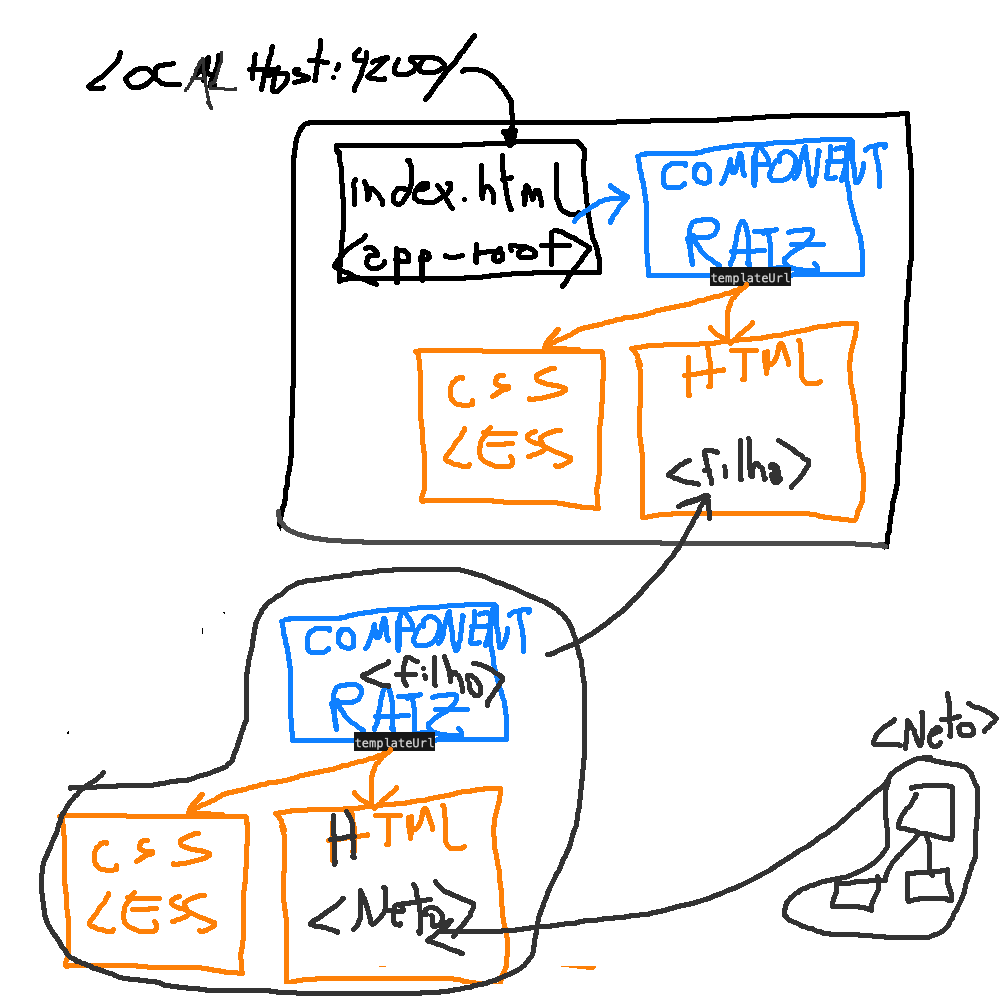 LOCAL Host:4200/
index.html
<app-root>
COMPONENT
RAIZ
templateUrl
CSS
LESS
HTML
<filho>
COMPONENT
<filho>
RAIZ
templateUrl
CSS
LESS
HTML
<Neto>
<Neto>